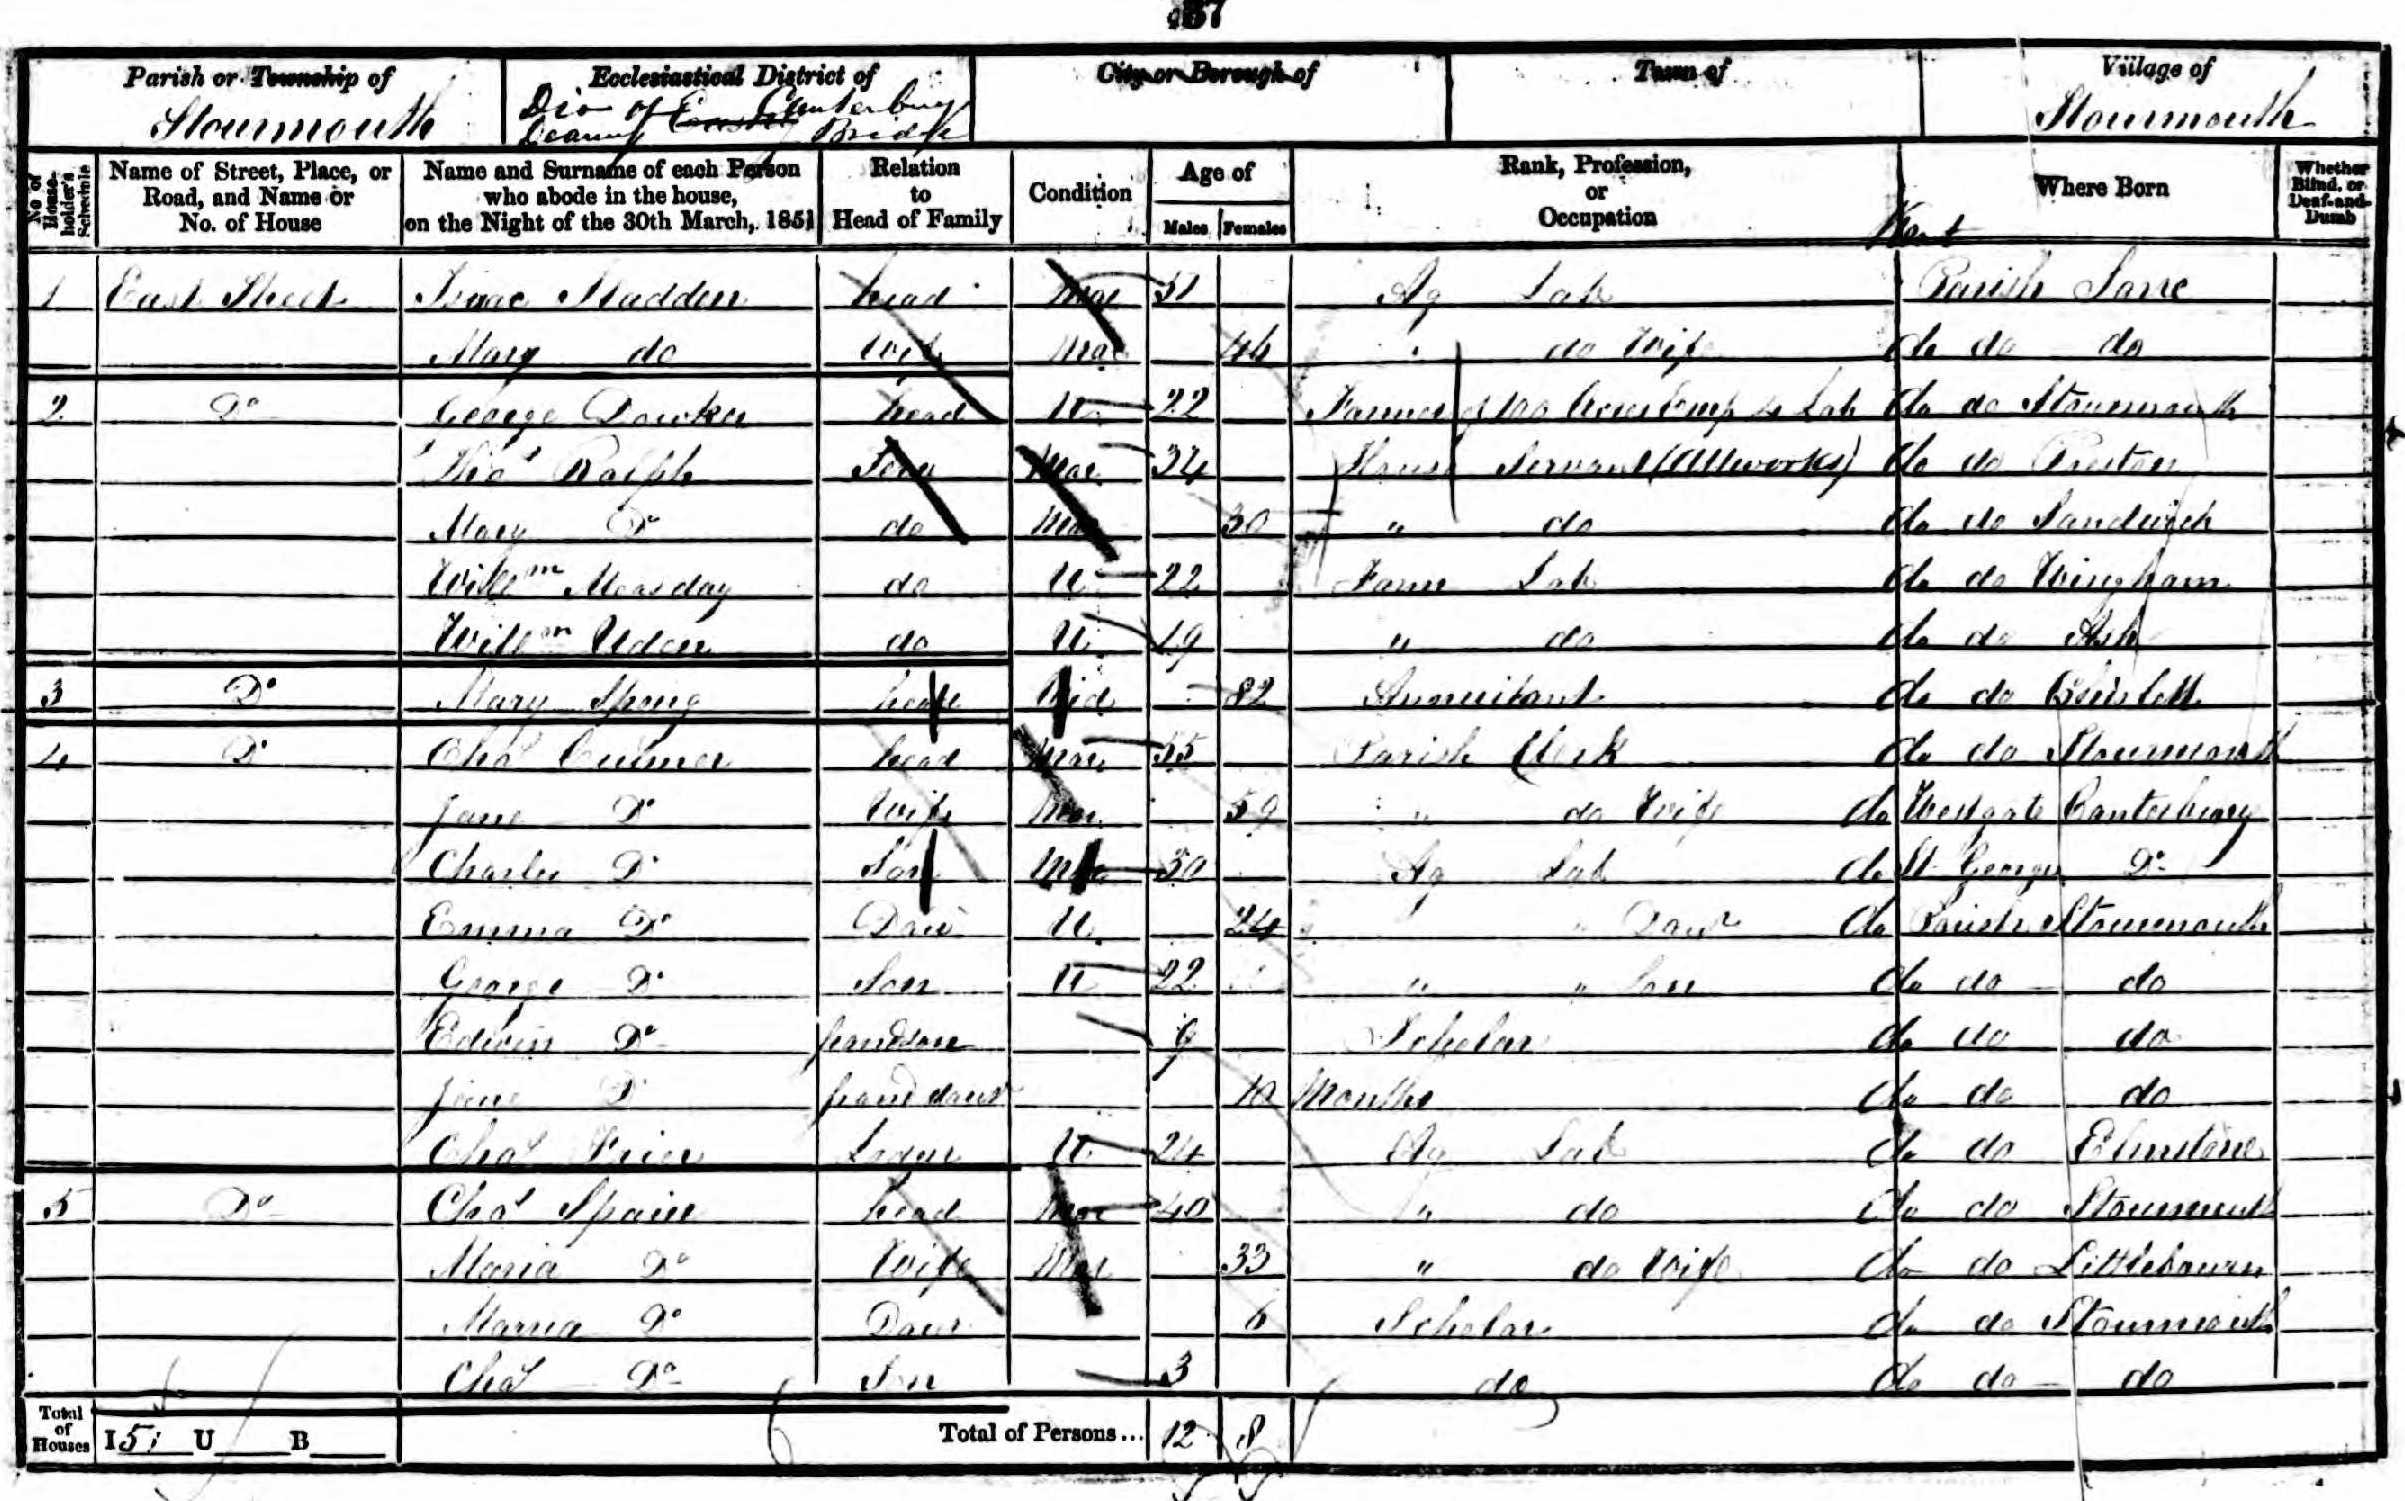 37
Parish or Township of Ecclesiastical District of City or Borough of Town of Village of
Stourmouth Dio of Canterbury Stourmouth
Deanry Bridge
No. of House-holder's Schedule Name of Street, Place, or Road, and Name or No. of House Name and Surname of each Person who abode in the house, on the Night of the 30th March, 1851 Relation to Head of Family Condition Age of Males Females Rank, Profession, or Occupation Where Born Whether Blind, or Deaf-and-Dumb
Kent
1 East Street Isaac Sladden head Mar 51 Ag Lab Parish Sarre
Mary do Wife Mar 46 " do Wife do do do
2 Do George Dowker head U 22 Farmer of 100 Acres Emp 4 Lab do do Stourmouth
Thos Ralph Serv Mar 34 House Servant (Allworks) do do Preston
Mary Do do Mar 30 " do do do Sandwich
Willm Monday do U 22 Farm Lab do do Wingham
Willm Uden do U 19 " do do do Ash
3 Do Mary Spong head Wid 82 Annuitant do do Chislett
4 Do Chas Culmer head Mar 55 Parish Clerk do do Stourmouth
Jane Do Wife Mar 59 " do Wife do Westgate Canterbury
Charles Do Son 30 Ag Lab do St George Do
Emma Do Daur U 24 " Daur do Parish Stourmouth
George Do Son U 22 " " Son do do do
Edwin Do Grandson 9 Scholar do do do
Jane Do Grand daur 10 Months do do do
Chas Lodger U 24 Ag Lab do do Elmstone
5 Do Chas Spain head Mar 40 " do do do Stourmouth
Maria Do Wife Mar 33 " do Wife do do Littlebourn
Maria Do Daur 6 Scholar do do Stourmouth
Chas Do Son 3 do do do do
Total of Houses I 5 U B Total of Persons... 12 8